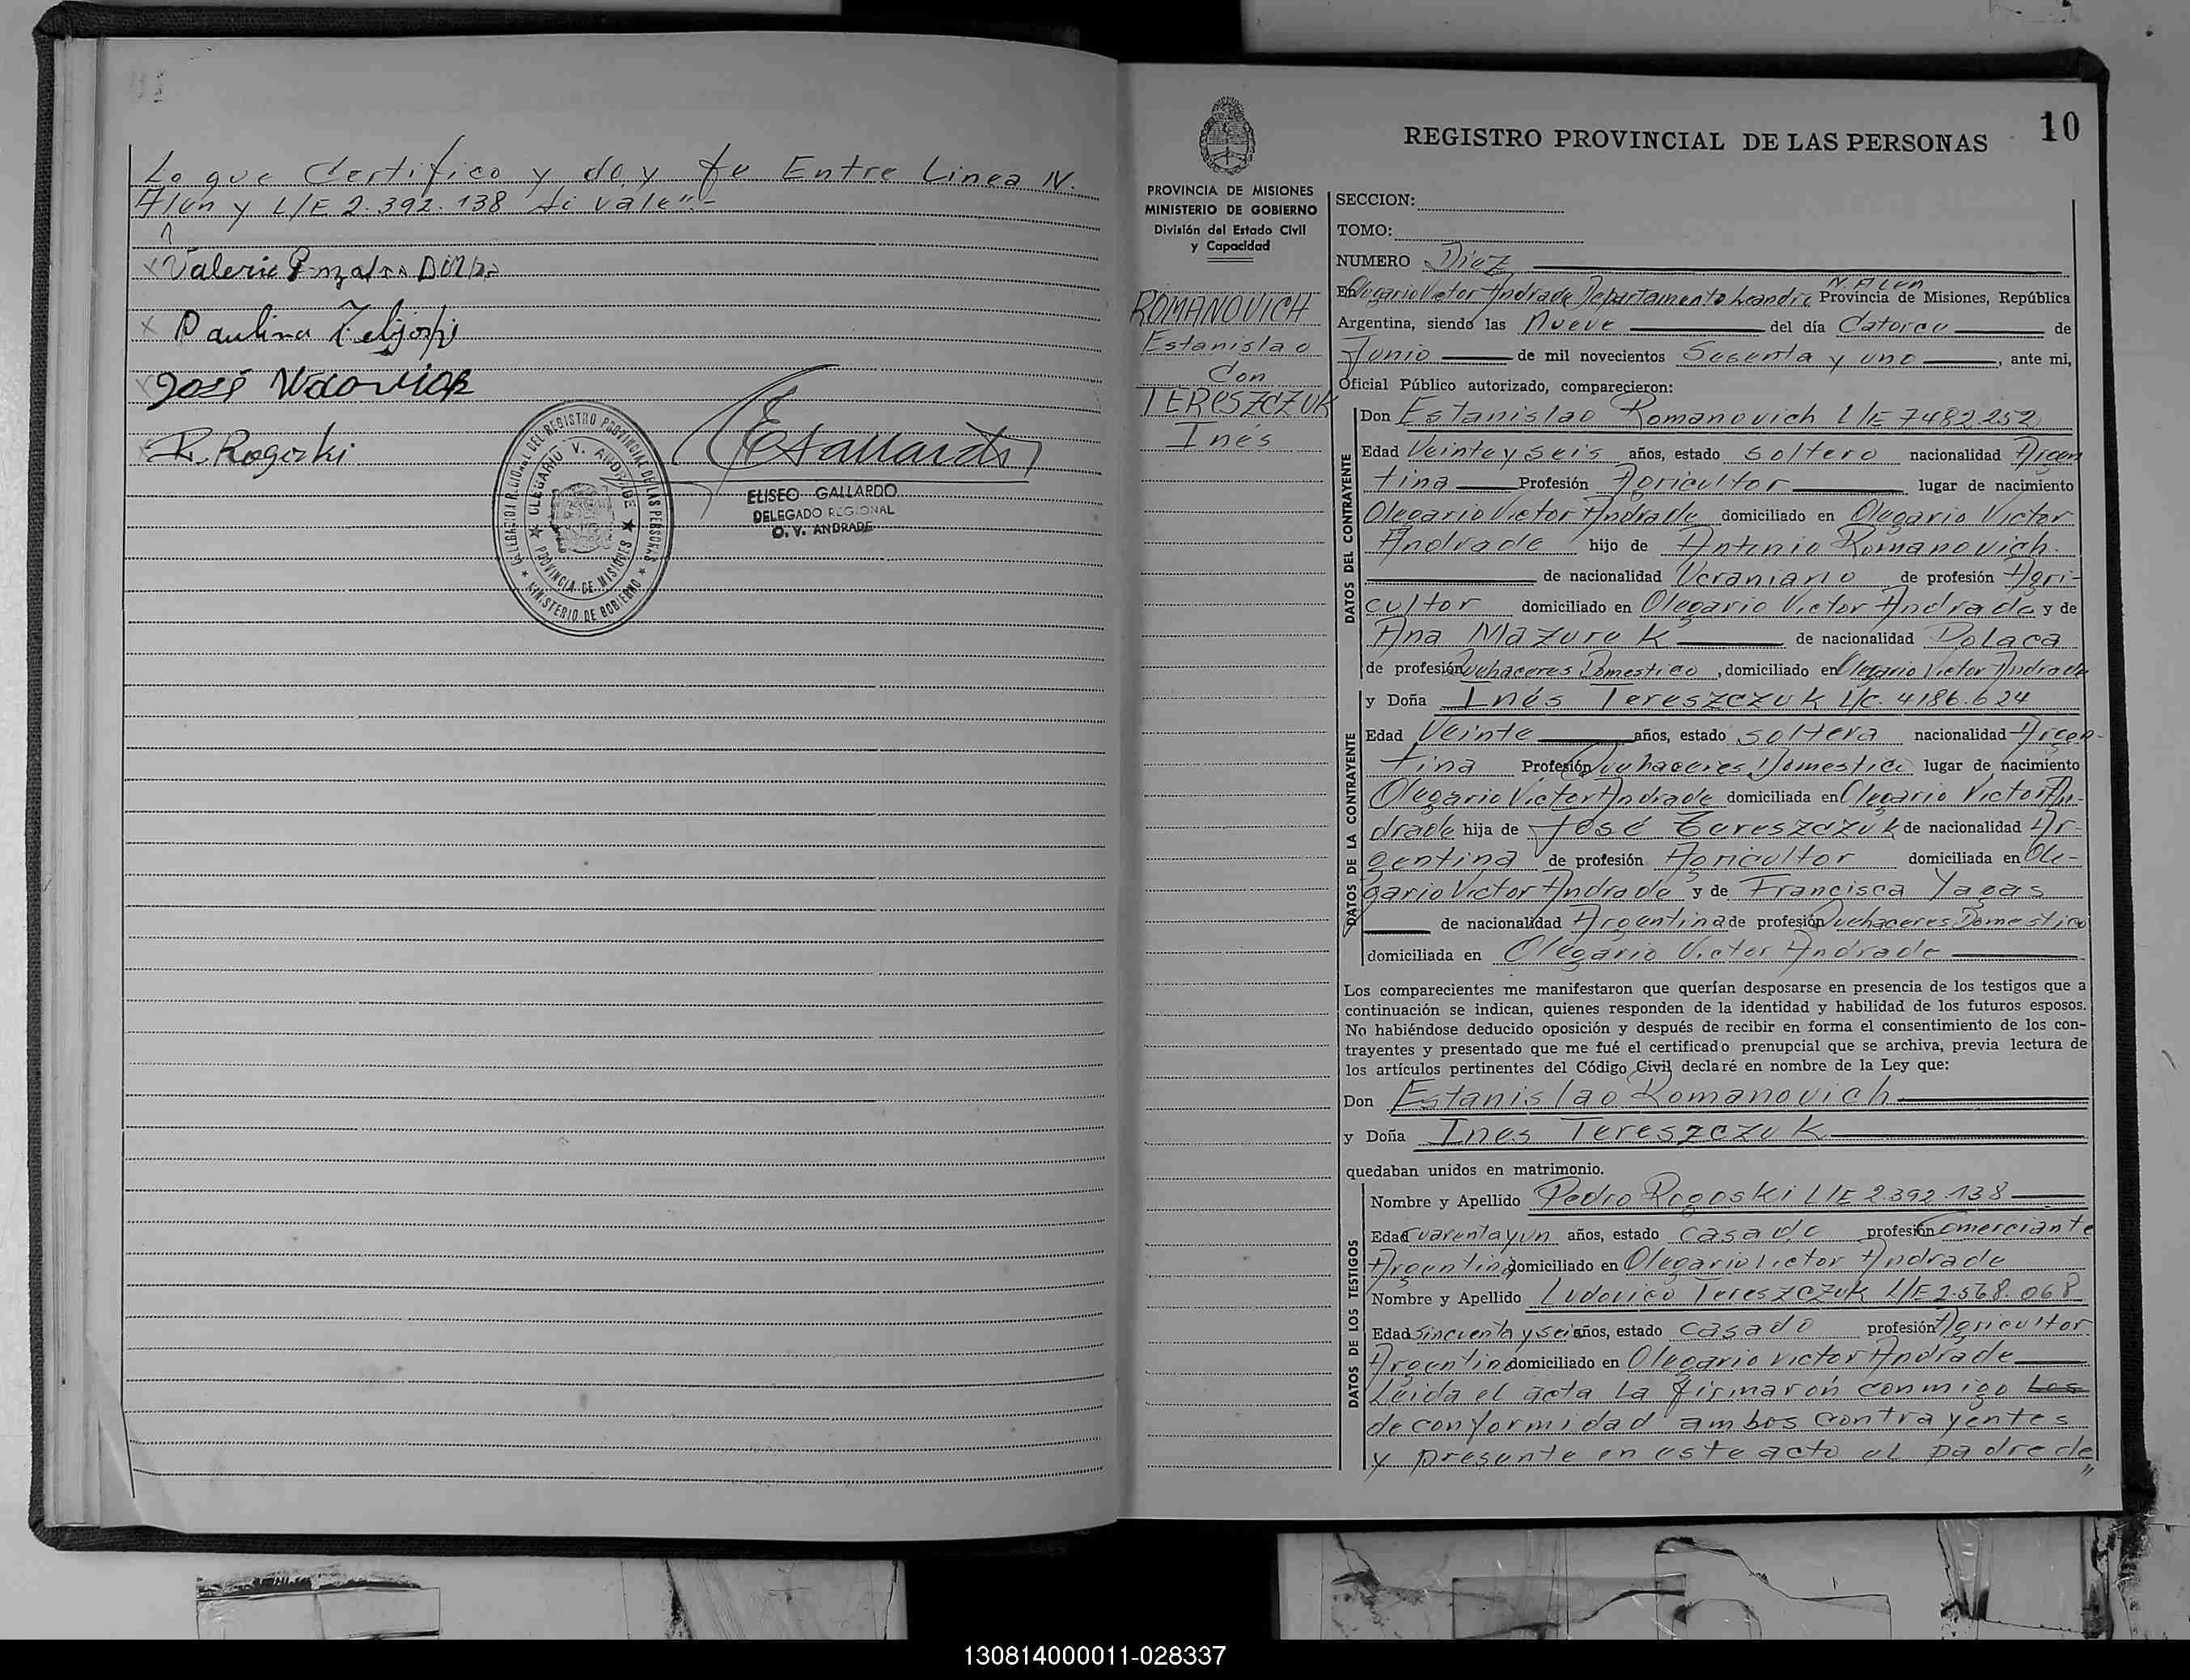 Lo que Certifico y doy fe Entre Linea N.
Alen y L/E 2.392.138 Si vale".-
Valerio
Paulina
José
R. Rogozki
DELEGACION REGIONAL DEL REGISTRO PROVINCIAL DE LAS PERSONAS
★ OLEGARIO V. ANDRADE ★
PROVINCIA DE MISIONES
★ MINISTERIO DE GOBIERNO ★
EGallardo
ELISEO GALLARDO
DELEGADO REGIONAL
O. V. ANDRADE
10
REGISTRO PROVINCIAL DE LAS PERSONAS
PROVINCIA DE MISIONES
MINISTERIO DE GOBIERNO
División del Estado Civil
y Capacidad
ROMANOVICH
Estanislao
Con
TERESZCZUK
Inés
SECCION:
TOMO:
NUMERO Diez
N. Alen
En Olegario Victor Andrade Departamento Leandro Provincia de Misiones, República
Argentina, siendo las Nueve del día Catorce de
Junio de mil novecientos Sesenta y uno, ante mi,
Oficial Público autorizado, comparecieron:
DATOS DEL CONTRAYENTE
Don Estanislao Romanovich L/E 7482.252
Edad Veinte y seis años, estado soltero nacionalidad Argen
tina Profesión Agricultor lugar de nacimiento
Olegario Victor Andrade domiciliado en Olegario Victor
Andrade hijo de Antonio Romanovich
de nacionalidad Ucraniano de profesión Agri-
cultor domiciliado en Olegario Victor Andrade y de
Ana Mazuruk de nacionalidad Polaca
de profesión Quehaceres Domestico, domiciliado en Olegario Victor Andrade
DATOS DE LA CONTRAYENTE
y Doña Inés Tereszczuk L/C. 4186.624
Edad Veinte años, estado soltera nacionalidad Argen-
tina Profesión Quehaceres Domestico lugar de nacimiento
Olegario Victor Andrade domiciliada en Olegario Victor An-
drade hija de José Tereszczuk de nacionalidad Ar-
gentina de profesión Agricultor domiciliada en Ole-
gario Victor Andrade y de Francisca Yagas
de nacionalidad Argentina de profesión Quehaceres Domestico
domiciliada en Olegario Victor Andrade
Los comparecientes me manifestaron que querían desposarse en presencia de los testigos que a
continuación se indican, quienes responden de la identidad y habilidad de los futuros esposos.
No habiéndose deducido oposición y después de recibir en forma el consentimiento de los con-
trayentes y presentado que me fué el certificado prenupcial que se archiva, previa lectura de
los artículos pertinentes del Código Civil declaré en nombre de la Ley que:
Don Estanislao Romanovich
y Doña Ines Tereszczuk
quedaban unidos en matrimonio.
DATOS DE LOS TESTIGOS
Nombre y Apellido Pedro Rogoski L/E 2.392.138
Edad Cuarenta y un años, estado casado profesión Comerciante
Argentino domiciliado en Olegario Victor Andrade
Nombre y Apellido Ludovico Tereszczuk L/E 2.568.068
Edad Sincuenta y Seis años, estado casado profesión Agricultor
Argentino domiciliado en Olegario Victor Andrade
Leida el acta la firmaron conmigo Los
de conformidad ambos contrayentes
y presente en este acto el padre de
"
130814000011-028337